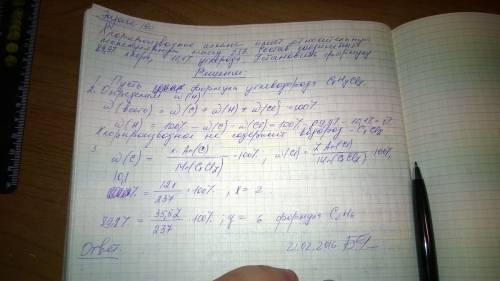 Задача
Хлорпроизводное алкана имеет относительную
молекулярную массу 237. Состав соединения
89,9% хлора, 10,1% углерода. Установить формулу
Решение:
1. Пусть формула углеводорода CxHyClz
2. Определим w(H)
w(всего) = w(C) + w(H) + w(Cl) = 100%
w(H) = 100% - w(C) - w(Cl) = 100% - 89,9% - 10,1% = 0%
Хлорпроизводное не содержит водород - CxClz
3. w(C) = x·Ar(C) / Mr(CxClz) ·100%, w(Cl) = z Ar(Cl) / Mr(CxClz) ·100%
10,1% = 12x / 237 ·100%, x = 2
89,8% = 35,5z / 237 ·100%, y = 6 формула
Ответ: 21.02.2016